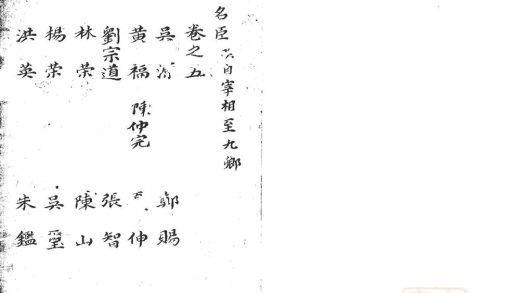 名臣 自宰相至九卿
卷之五
吳 鄭賜
黃福 陳仲完 伸
劉宗道 張智
林榮 陳山
楊榮 吳璽
洪英 朱鑑